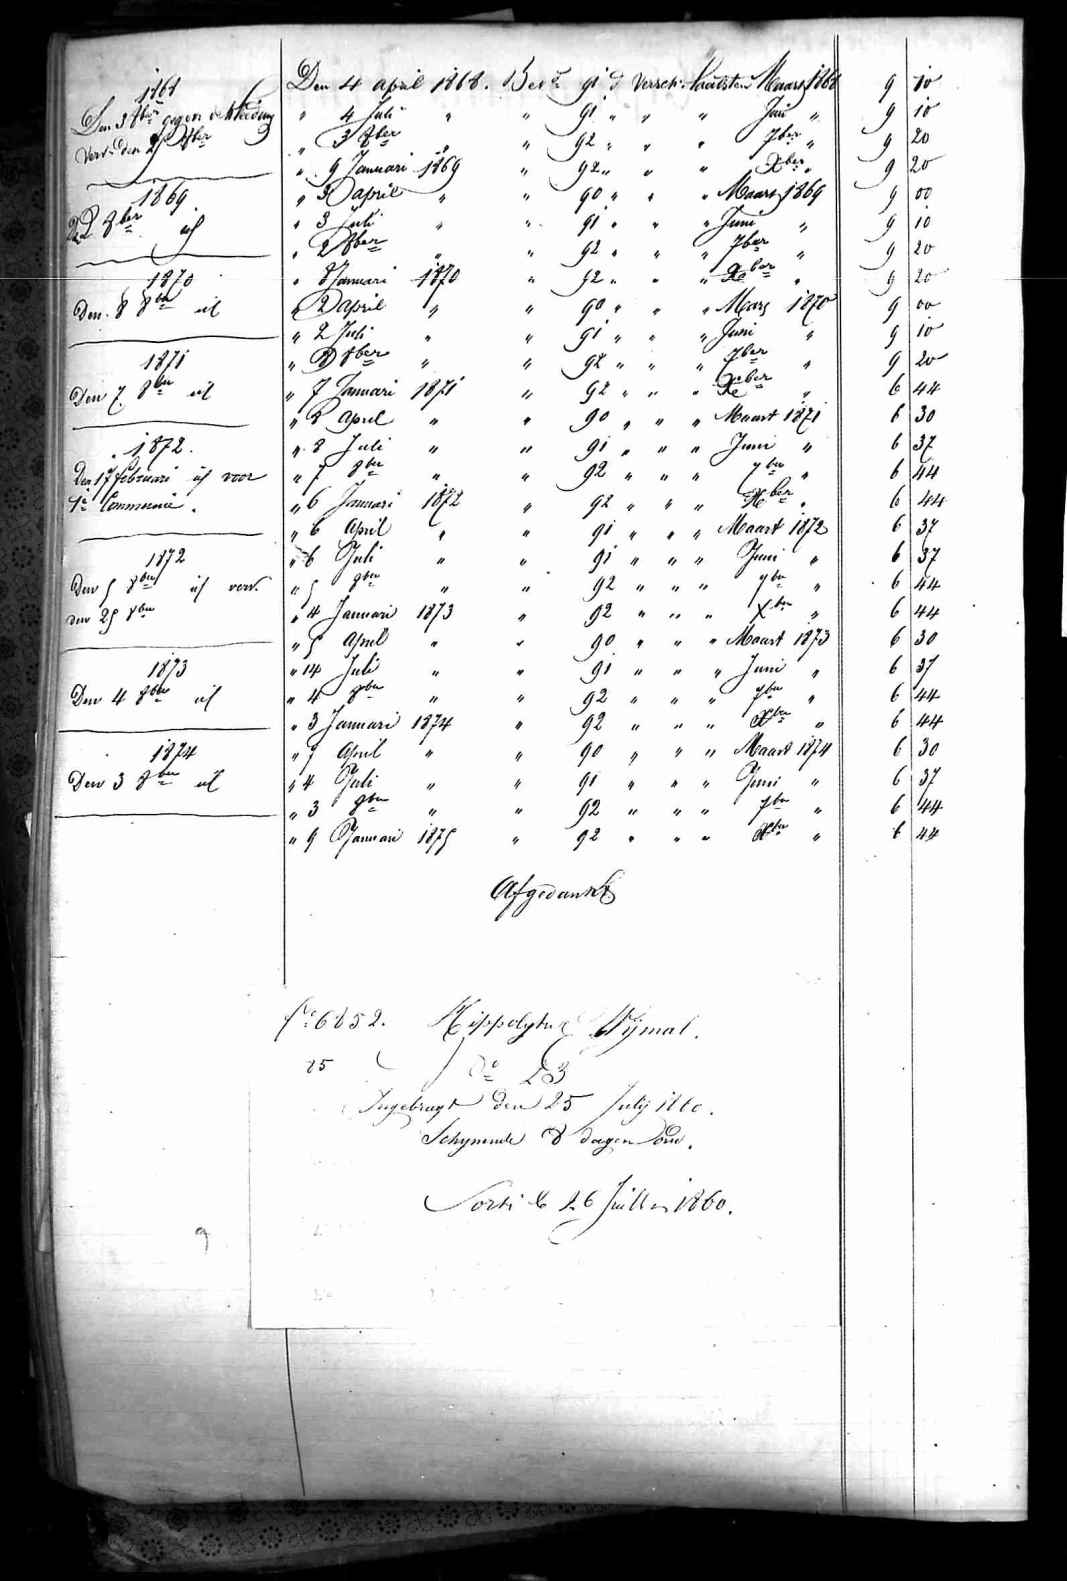 1868
Den 3 8ber gegeven de kleeding
vers. den 25 8ber
1869
22 8ber id
1870
Den 8 8ber id
1871
Den 7 8ber id
1872.
Den 17 februari id voor
1e Communie.
1872
Den 5 8ber id vers.
den 25 8ber
1873
Den 4 8ber id
1874
Den 3 8ber id
Den 4 april 1868. Bet.d 91 d versch. laatsten Maart 1868 9 10
" 4 Juli " " 91 " " " Juni " 9 10
" 3 8ber " " 92 " " " 7ber " 9 20
" 9 Januari 1869 " 92 " " " Xber " 9 20
" 3 april " " 90 " " " Maart 1869 9 00
" 3 Juli " " 91 " " " Juni " 9 10
" 2 8ber " " 92 " " " 7ber " 9 20
" 8 Januari 1870 " 92 " " " Xber " 9 20
" 2 april " " 90 " " " Mars 1870 9 00
" 2 Juli " " 91 " " " Juni " 9 10
" 8ber " " 92 " " " 7ber " 9 20
" 7 Januari 1871 " 92 " " " Xber " 6 44
" 2 April " " 90 " " " Maart 1871 6 30
" 8 Juli " " 91 " " " Juni " 6 37
" 7 8ber " " 92 " " " 7ber " 6 44
" 6 Januari 1872 " 92 " " " Xber " 6 44
" 6 April " " 91 " " " Maart 1872 6 37
" 6 Juli " " 91 " " " Juni " 6 37
" 5 8ber " " 92 " " " 7ber " 6 44
" 4 Januari 1873 " 92 " " " Xber " 6 44
" 5 April " " 90 " " " Maart 1873 6 30
" 14 Juli " " 91 " " " Juni " 6 37
" 4 8ber " " 92 " " " 7ber " 6 44
" 3 Januari 1874 " 92 " " " Xber " 6 44
" 7 April " " 90 " " " Maart 1874 6 30
" 4 Juli " " 91 " " " Juni " 6 37
" 3 8ber " " 92 " " " 7ber " 6 44
" 9 Januari 1875 " 92 " " " Xber " 6 44
Afgedankt
fo 6852. Hippolytus Wymal.
25
No 23
Ingebragt den 25 July 1860.
Schynende 8 dagen oud.
Sorti le 26 Juillet 1860.